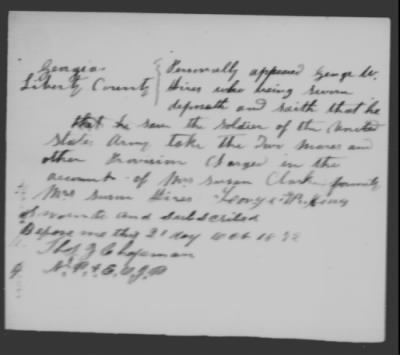 Georgia
Liberty County
Personally appeared George W.
Hires who being sworn
deposeth and saith that he
that he saw the soldier of the United
States Army take the Two Mares and
other Provision Charged in the
account of Mrs Susan Clark formerly
Mrs Susan Hires George W Hires
Sworn to and subscribed
Before me this 2d day Oct 18
Thos J Chapman
N. P. & E. O. J. P